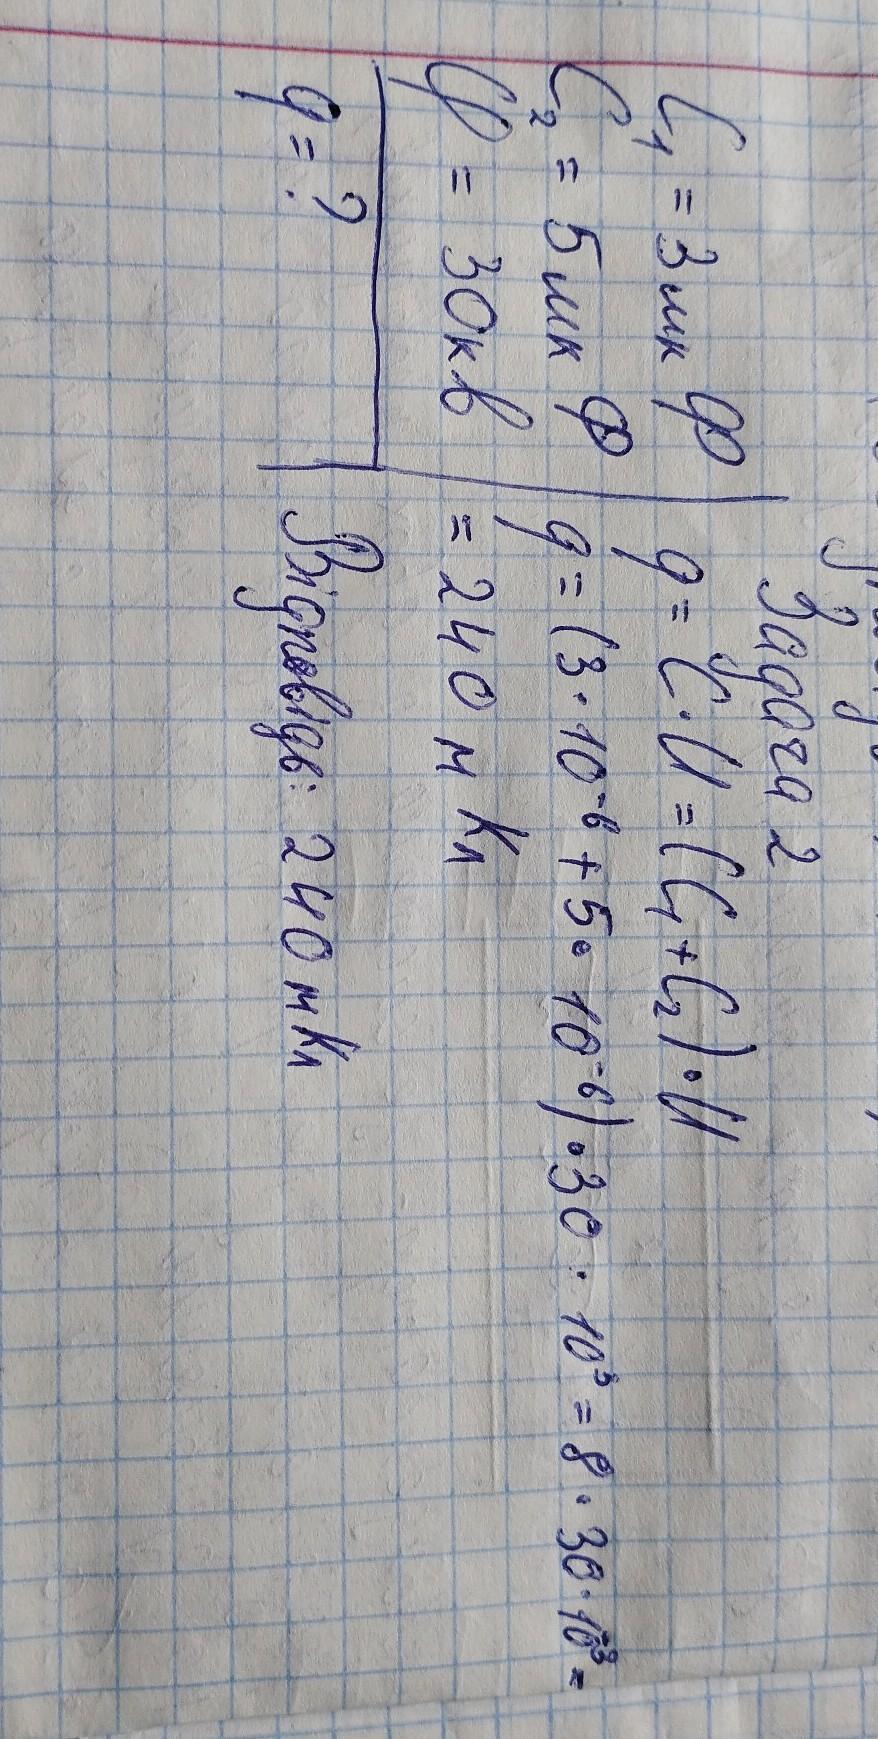 Задача 2
C₁ = 3 мк Ф
C₂ = 5 мк Ф
φ = 30кв
q = ?
q = C · U = (C₁ + C₂) · U
q = (3 · 10⁻⁶ + 5 · 10⁻⁶) · 30 · 10³ = 8 · 30 · 10⁻³ =
= 240 м Кл
Відповідь: 240 мКл